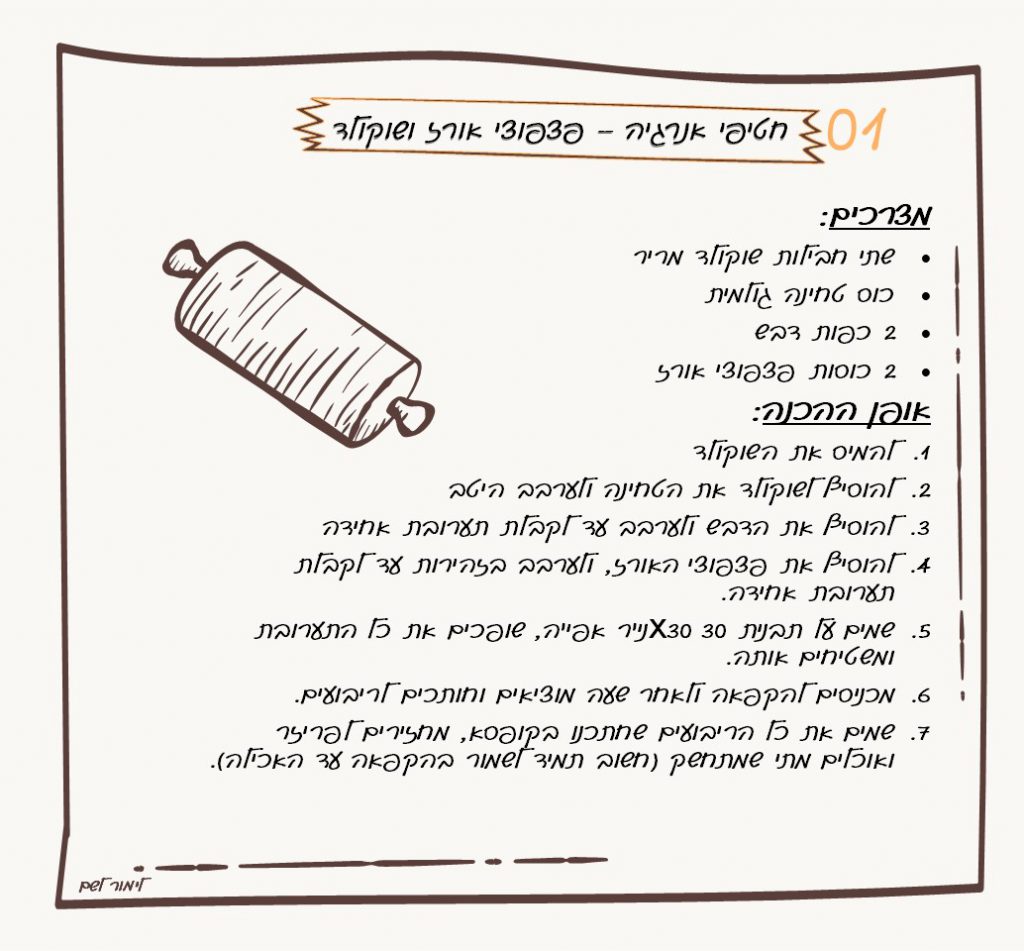 01
חטיפי אנרגיה – פצפוצי אורז ושוקולד
מצרכים:
• שתי חבילות שוקולד מריר
• כוס טחינה גולמית
• 2 כפות דבש
• 2 כוסות פצפוצי אורז
אופן ההכנה:
1. להמיס את השוקולד
2. להוסיף לשוקולד את הטחינה ולערבב היטב
3. להוסיף את הדבש ולערבב עד לקבלת תערובת אחידה
4. להוסיף את פצפוצי האורז, ולערבב בזהירות עד לקבלת
תערובת אחידה.
5. שמים על תבנית 30 X30נייר אפייה, שופכים את כל התערובת
ומשטיחים אותה.
6. מכניסים להקפאה ולאחר שעה מוציאים וחותכים לריבועים.
7. שמים את כל הריבועים שחתכנו בקופסא, מחזירים לפריזר
ואוכלים מתי שמתחשק (חשוב תמיד לשמור בהקפאה עד האכילה).
לימור לשם